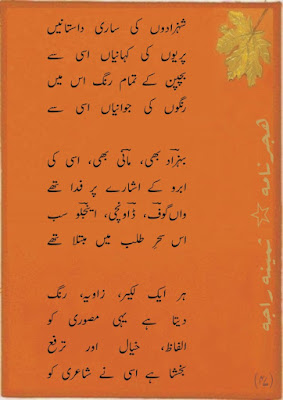 شہزادوں کی ساری داستانیں
پریوں کی کہانیاں اسی سے
بچپن کے تمام رنگ اس میں
رنگوں کی جوانیاں اسی سے
بہزاد بھی، مانی بھی، اسی کی
ابرو کے اشارے پر فدا تھے
وان گوف، ڈاونچی، اینجلو سب
اس سحرِ طلب میں مبتلا تھے
ہر ایک لکیر، زاویہ، رنگ
دیتا ہے یہی مصوری کو
الفاظ، خیال اور ترفع
بخشا ہے اسی نے شاعری کو
ھجر نامہ ☆ ثمینہ راجہ